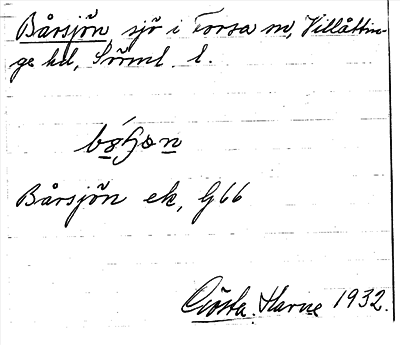 Bårsjön, sjö i Forsa sn, Villåttin-
ge hd, Sörml. l.
Bårsjön ek, G66
Gösta Harne 1932.